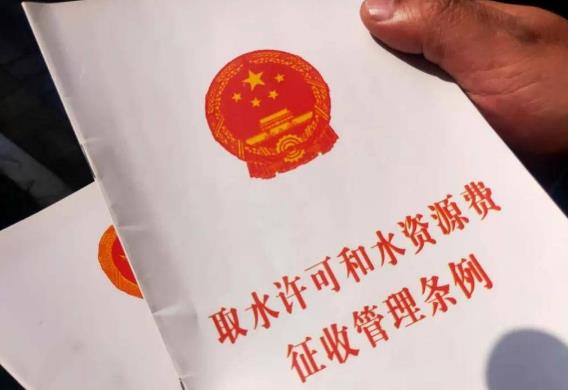 取水许可和水资源费
征收管理条例